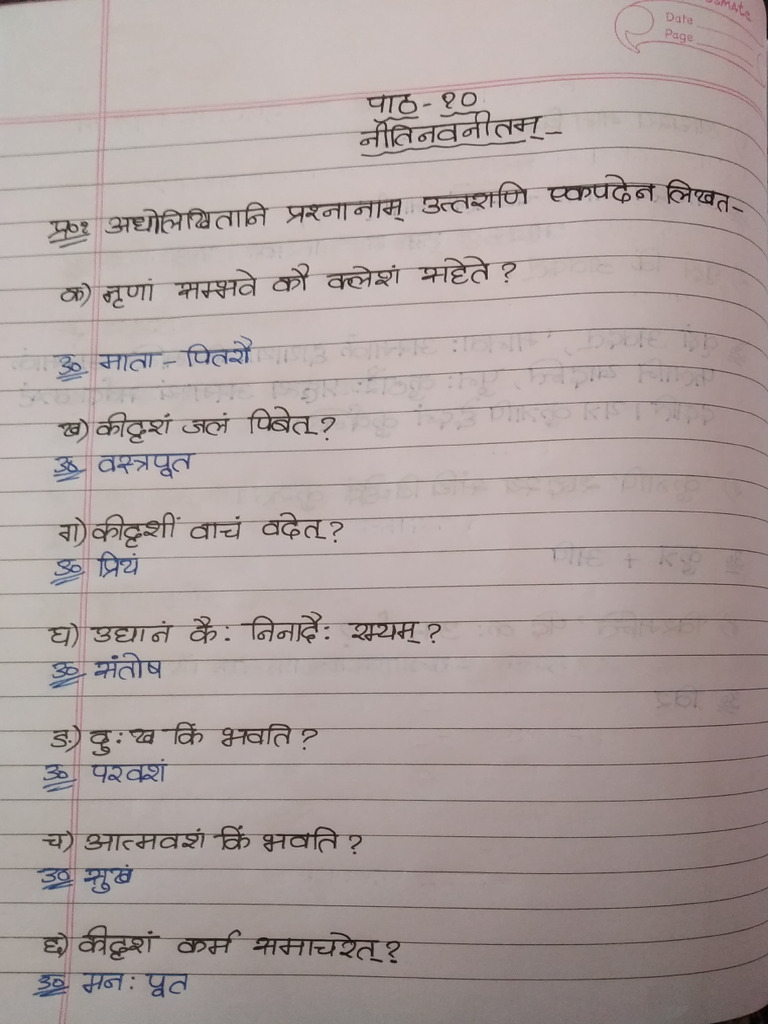 classmate
Date
Page
पाठ - १०
नीतिनवनीतम् -
प्र०१ अधोलिखितानि प्रश्नानाम् उत्तराणि एकपदेन लिखत -
क) नृणां सम्भवे कौ क्लेशं सहेते ?
उ० माता - पितरौ
ख) कीदृशं जलं पिबेत् ?
उ० वस्त्रपूत
ग) कीदृशीं वाचं वदेत् ?
उ० प्रियं
घ) उद्यानं कैः निनादैः रम्यम् ?
उ० संतोष
ङ) दुःख किं भवति ?
उ० परवशं
च) आत्मवशं किं भवति ?
उ० सुखं
छ) कीदृशं कर्म समाचरेत् ?
उ० मनः पूत